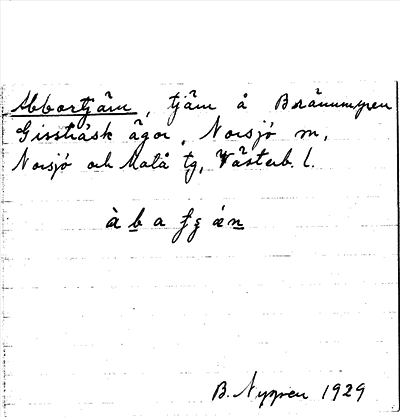 Abbortjärn, tjärn å Brännmyren
Gissträsk ägor, Norsjö sn,
Norsjö och Malå tg, Västerb. l.
à b a ʃʒ æ n
B. Nygren 1929